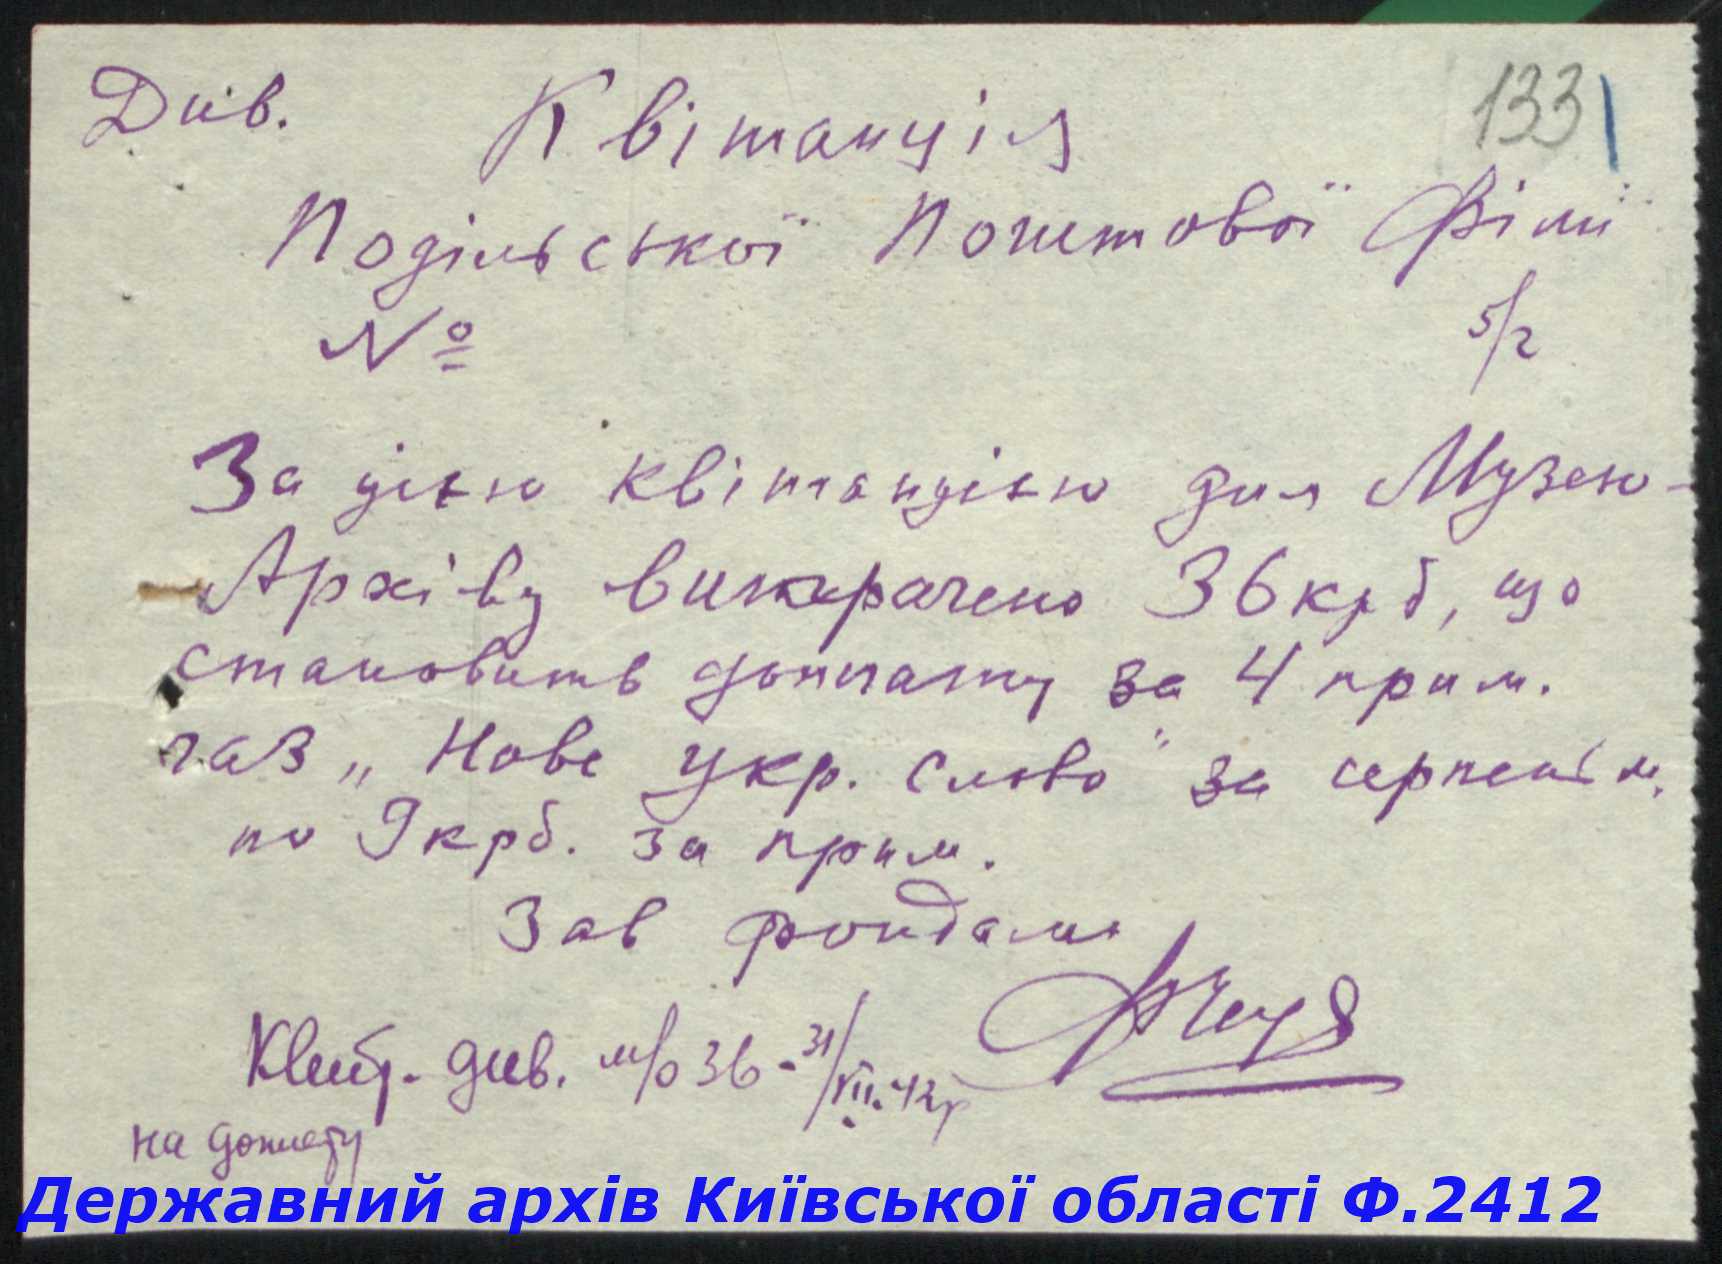 Див. Квітанція 133
Подільської Поштової Філії
№ б/г
За цією квітанцією для Музею-
-Архіву витрачено 36 крб, що
становить доплату за 4 прим.
газ „Нове Укр. Слово" за серпень м.
по 9 крб. за прим.
Зав фондами
Квит. див. м/о 36 - 31/VII.42р
на доплату
Державний архів Київської області Ф.2412